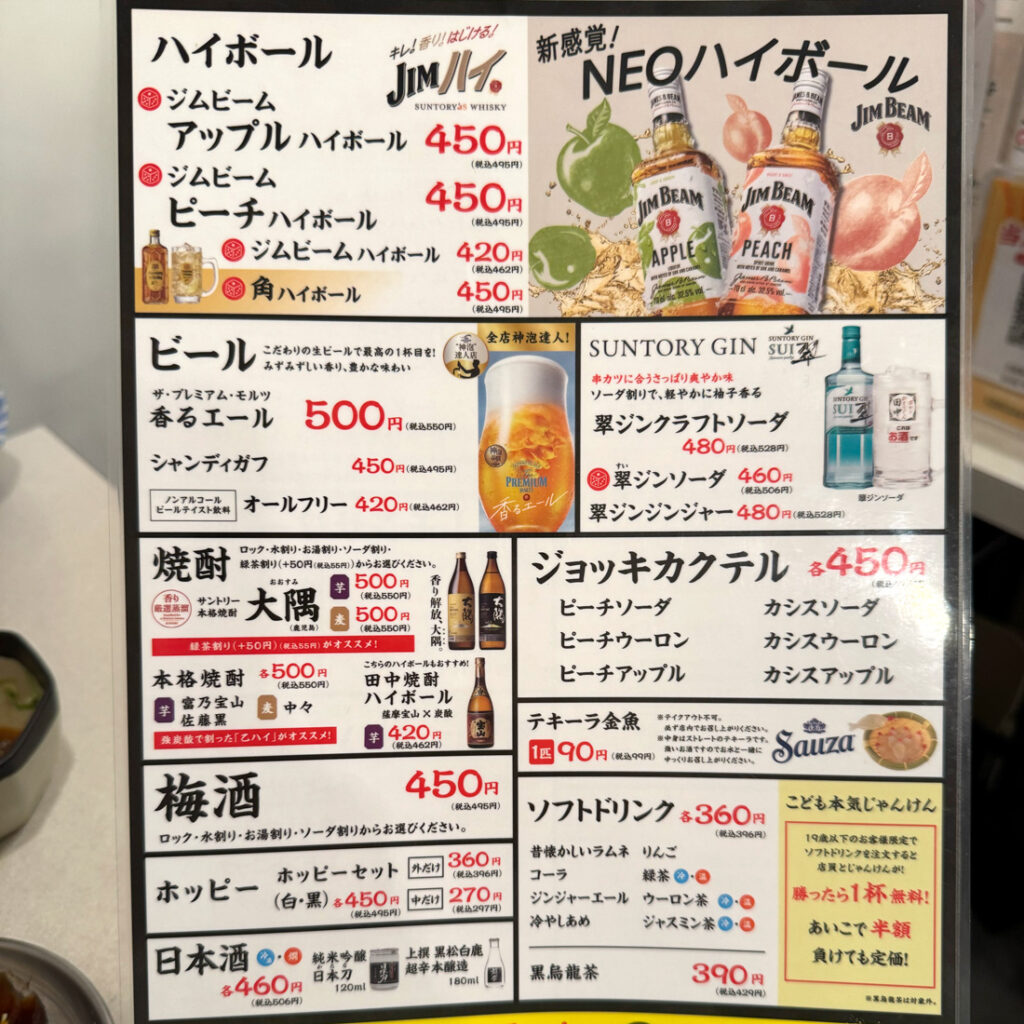 ハイボール
キレ!香り!はじける!
JIMハイ
SUNTORY's WHISKY
ジムビーム
アップル ハイボール 450円
(税込495円)
ジムビーム
ピーチ ハイボール 450円
(税込495円)
ジムビーム ハイボール 420円
(税込462円)
角 ハイボール 450円
(税込495円)
新感覚!
NEOハイボール
JIM BEAM
JIM BEAM
APPLE
JIM BEAM
PEACH
ビール
こだわりの生ビールで最高の1杯目を!
みずみずしい香り、豊かな味わい
"神泡"
達人店
全店神泡達人!
ザ・プレミアム・モルツ
香るエール 500円(税込550円)
シャンディガフ 450円(税込495円)
ノンアルコール
ビールテイスト飲料
オールフリー 420円(税込462円)
PREMIUM
香るエール
SUNTORY GIN
SUNTORY GIN
SUI 翠
串カツに合うさっぱり爽やか味
ソーダ割りで、軽やかに柚子香る
翠ジンクラフトソーダ
480円(税込528円)
すい
翠ジンソーダ 460円
(税込506円)
翠ジンジンジャー 480円(税込528円)
SUNTORY GIN
SUI 翠
田中
これは
お酒です
翠ジンソーダ
焼酎
ロック・水割り・お湯割り・ソーダ割り・
緑茶割り(+50円(税込55円))からお選びください。
香り
厳選蒸溜
サントリー
本格焼酎
おおすみ
大隅
(鹿児島)
芋 500円
(税込550円)
麦 500円
(税込550円)
香り解放、大隅。
緑茶割り(+50円)(税込55円)がオススメ!
本格焼酎 各500円
(税込550円)
芋 富乃宝山
佐藤黒
麦 中々
強炭酸で割った「乙ハイ」がオススメ!
こちらのハイボールもおすすめ!
田中焼酎
ハイボール
薩摩宝山×炭酸
芋 420円
(税込462円)
宝山
ジョッキカクテル 各450円
ピーチソーダ カシスソーダ
ピーチウーロン カシスウーロン
ピーチアップル カシスアップル
テキーラ金魚
1匹 90円(税込99円)
※テイクアウト不可。
必ず店内でお召し上がりください。
※中身はストレートのテキーラです。
強いお酒ですのでお水と一緒に
ゆっくりお召し上がりください。
Sauza
梅酒 450円
(税込495円)
ロック・水割り・お湯割り・ソーダ割りからお選びください。
ホッピー
ホッピーセット
(白・黒) 各450円
(税込495円)
外だけ 360円
(税込396円)
中だけ 270円
(税込297円)
日本酒 冷・燗
各460円
(税込506円)
純米吟醸
日本刀
120ml
上撰 黒松白鹿
超辛本醸造
180ml
ソフトドリンク 各360円
(税込396円)
昔懐かしいラムネ りんご
コーラ 緑茶 冷・温
ジンジャーエール ウーロン茶 冷・温
冷やしあめ ジャスミン茶 冷・温
黒烏龍茶 390円
(税込429円)
こども本気じゃんけん
19歳以下のお客様限定で
ソフトドリンクを注文すると
店員とじゃんけんが!
勝ったら1杯無料!
あいこで半額
負けても定価!
※黒烏龍茶は対象外。